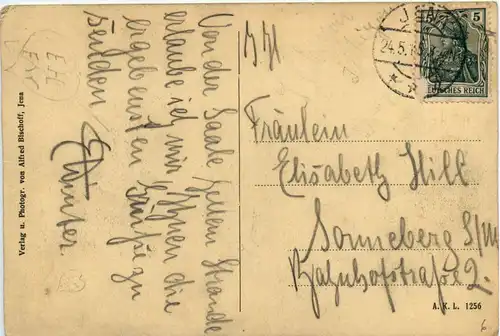 Von der Saale hellem Strande
erlaube ich mir Ihnen die
ergebensten Grüße zu
senden
EWinter.
Verlag u. Photogr. von Alfred Bischoff, Jena
JENA
24.5.
5
DEUTSCHES REICH
Fräulein
Elisabeth Hill
Sonneberg S/M
Bahnhofstraße 2.
A. K. L. 1256